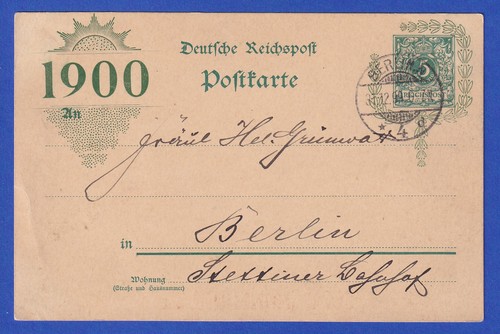 Deutsche Reichspost
1900
Postkarte
BERLIN
5
12
4 d
An
Fräul. Hel. Grunwald
Berlin
in
Stettiner Bahnhof
Wohnung
(Straße und Hausnummer)